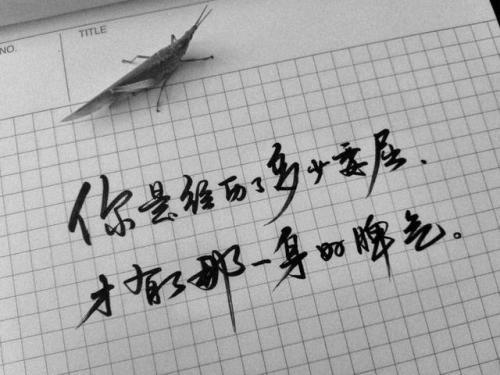 NO.
TITLE
你是经历了多少委屈、
才有了那一身的脾气。